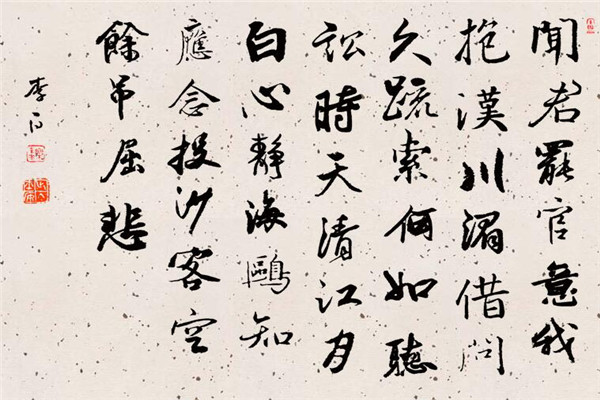 聞君罷官意我
抱漢川湄借問
久疏索何如聽
訟時天清江月
白心靜海鷗知
應念投沙客空
餘吊屈悲
李白